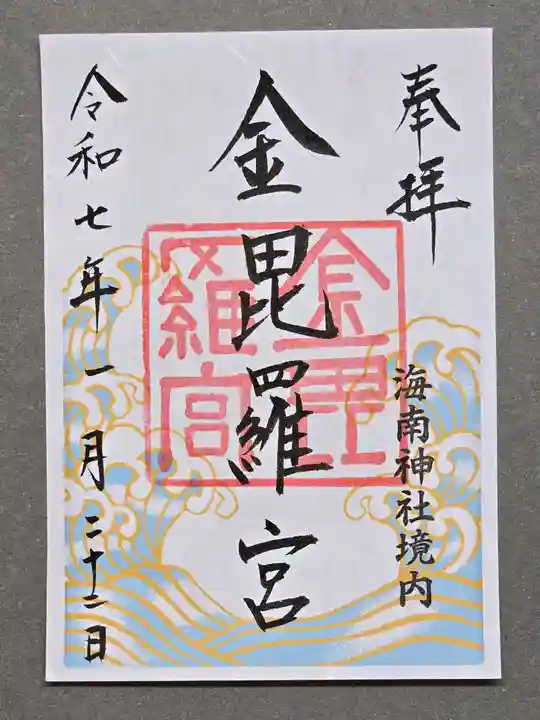 奉拝
海南神社境内
金毘羅宮
令和七年一月二十二日